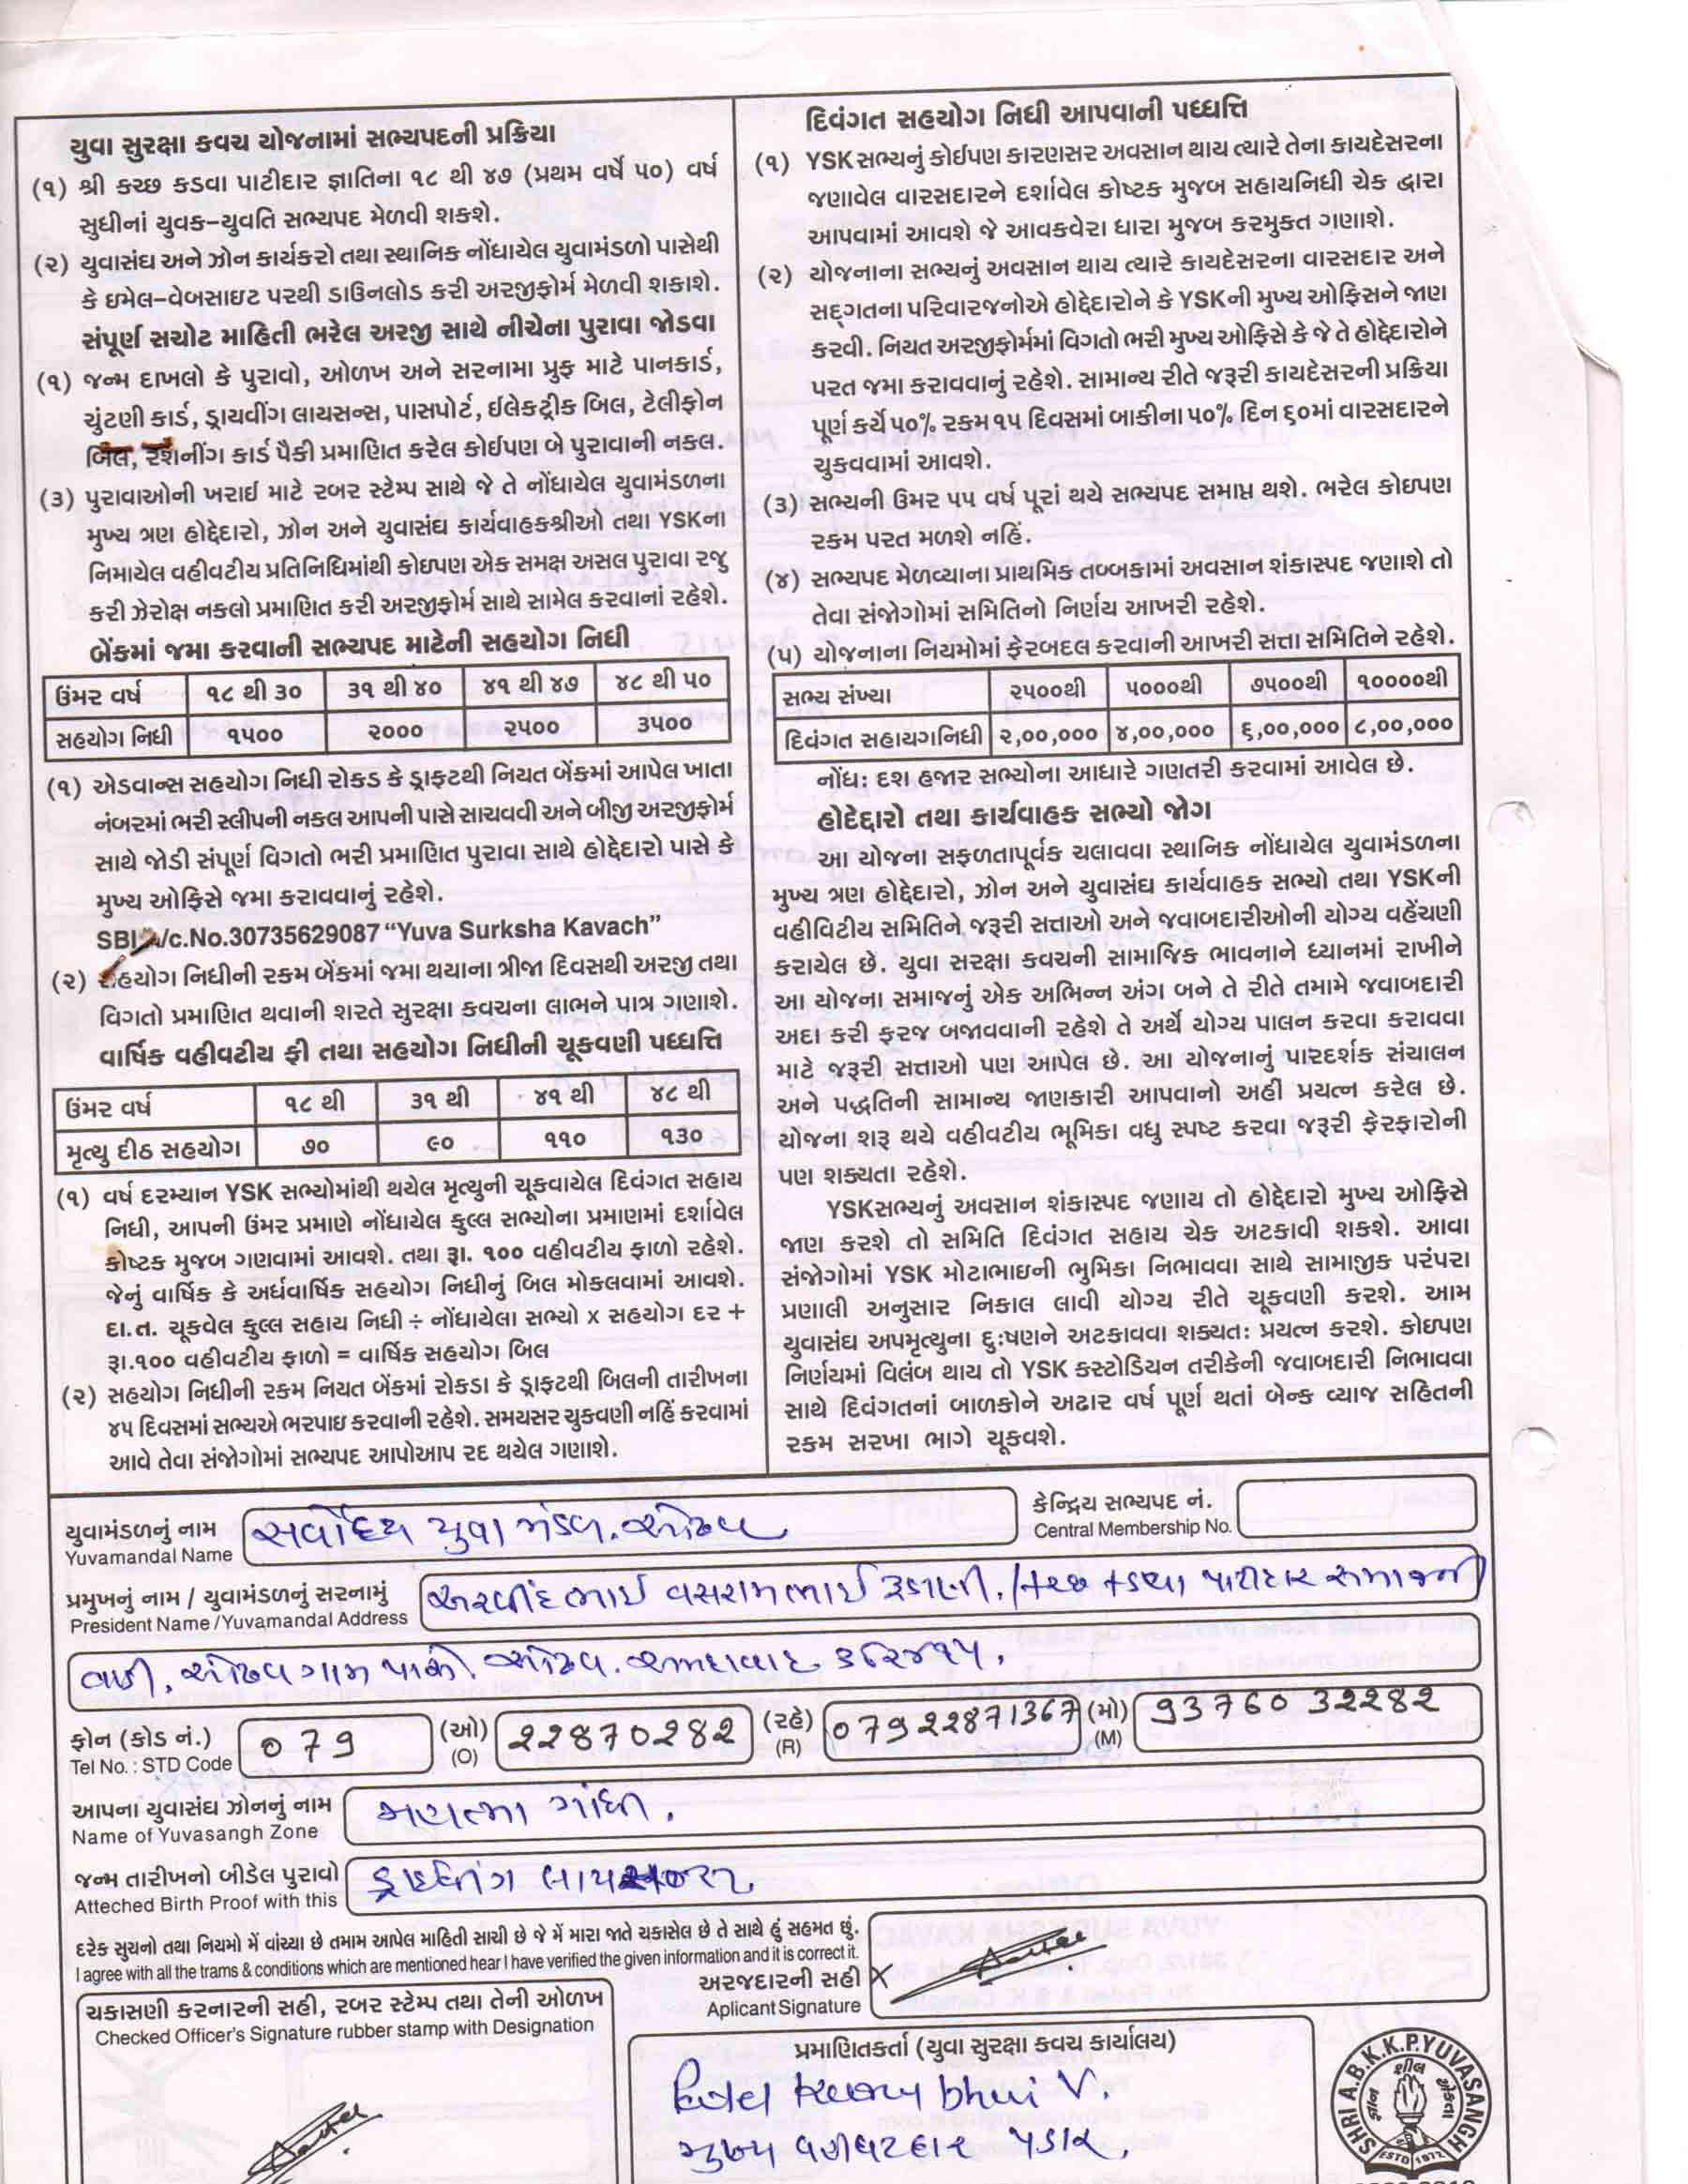 યુવા સુરક્ષા કવચ યોજનામાં સભ્યપદની પ્રક્રિયા
(૧) શ્રી કચ્છ કડવા પાટીદાર જ્ઞાતિના ૧૮ થી ૪૭ (પ્રથમ વર્ષે ૫૦) વર્ષ
સુધીનાં યુવક-યુવતિ સભ્યપદ મેળવી શકશે.
(૨) યુવાસંઘ અને ઝોન કાર્યકરો તથા સ્થાનિક નોંધાયેલ યુવામંડળો પાસેથી
કે ઇમેલ-વેબસાઇટ પરથી ડાઉનલોડ કરી અરજીફોર્મ મેળવી શકાશે.
સંપૂર્ણ સચોટ માહિતી ભરેલ અરજી સાથે નીચેના પુરાવા જોડવા
(૧) જન્મ દાખલો કે પુરાવો, ઓળખ અને સરનામા પ્રુફ માટે પાનકાર્ડ,
ચુંટણી કાર્ડ, ડ્રાયવીંગ લાયસન્સ, પાસપોર્ટ, ઈલેક્ટ્રીક બિલ, ટેલીફોન
બિલ, રેશનીંગ કાર્ડ પૈકી પ્રમાણિત કરેલ કોઈપણ બે પુરાવાની નકલ.
(૩) પુરાવાઓની ખરાઇ માટે રબર સ્ટેમ્પ સાથે જે તે નોંધાયેલ યુવામંડળના
મુખ્ય ત્રણ હોદ્દેદારો, ઝોન અને યુવાસંઘ કાર્યવાહકશ્રીઓ તથા YSKના
નિમાયેલ વહીવટીય પ્રતિનિધિમાંથી કોઇપણ એક સમક્ષ અસલ પુરાવા રજુ
કરી ઝેરોક્ષ નકલો પ્રમાણિત કરી અરજીફોર્મ સાથે સામેલ કરવાનાં રહેશે.
બેંકમાં જમા કરવાની સભ્યપદ માટેની સહયોગ નિધી
ઉંમર વર્ષ ૧૮ થી ૩૦ ૩૧ થી ૪૦ ૪૧ થી ૪૭ ૪૮ થી ૫૦
સહયોગ નિધી ૧૫૦૦ ૨૦૦૦ ૨૫૦૦ ૩૫૦૦
(૧) એડવાન્સ સહયોગ નિધી રોકડ કે ડ્રાફટથી નિયત બેંકમાં આપેલ ખાતા
નંબરમાં ભરી સ્લીપની નકલ આપની પાસે સાચવવી અને બીજી અરજીફોર્મ
સાથે જોડી સંપૂર્ણ વિગતો ભરી પ્રમાણિત પુરાવા સાથે હોદ્દેદારો પાસે કે
મુખ્ય ઓફિસે જમા કરાવવાનું રહેશે.
SBI A/c.No.30735629087 “Yuva Surksha Kavach”
(૨) સહયોગ નિધીની રકમ બેંકમાં જમા થયાના ત્રીજા દિવસથી અરજી તથા
વિગતો પ્રમાણિત થવાની શરતે સુરક્ષા કવચના લાભને પાત્ર ગણાશે.
વાર્ષિક વહીવટીય ફી તથા સહયોગ નિધીની ચૂકવણી પધ્ધત્તિ
ઉંમર વર્ષ ૧૮ થી ૩૧ થી ૪૧ થી ૪૮ થી
મૃત્યુ દીઠ સહયોગ ૭૦ ૯૦ ૧૧૦ ૧૩૦
(૧) વર્ષ દરમ્યાન YSK સભ્યોમાંથી થયેલ મૃત્યુની ચૂકવાયેલ દિવંગત સહાય
નિધી, આપની ઉંમર પ્રમાણે નોંધાયેલ કુલ્લ સભ્યોના પ્રમાણમાં દર્શાવેલ
કોષ્ટક મુજબ ગણવામાં આવશે. તથા રૂા. ૧૦૦ વહીવટીય ફાળો રહેશે.
જેનું વાર્ષિક કે અર્ધવાર્ષિક સહયોગ નિધીનું બિલ મોકલવામાં આવશે.
દા.ત. ચૂકવેલ કુલ્લ સહાય નિધી ÷ નોંધાયેલા સભ્યો x સહયોગ દર +
રૂા.૧૦૦ વહીવટીય ફાળો = વાર્ષિક સહયોગ બિલ
(૨) સહયોગ નિધીની રકમ નિયત બેંકમાં રોકડા કે ડ્રાફટથી બિલની તારીખના
૪૫ દિવસમાં સભ્યએ ભરપાઇ કરવાની રહેશે. સમયસર ચુકવણી નહિં કરવામાં
આવે તેવા સંજોગોમાં સભ્યપદ આપોઆપ રદ થયેલ ગણાશે.
દિવંગત સહયોગ નિધી આપવાની પધ્ધત્તિ
(૧) YSK સભ્યનું કોઈપણ કારણસર અવસાન થાય ત્યારે તેના કાયદેસરના
જણાવેલ વારસદારને દર્શાવેલ કોષ્ટક મુજબ સહાયનિધી ચેક દ્વારા
આપવામાં આવશે જે આવકવેરા ધારા મુજબ કરમુકત ગણાશે.
(૨) યોજનાના સભ્યનું અવસાન થાય ત્યારે કાયદેસરના વારસદાર અને
સદ્ગતના પરિવારજનોએ હોદ્દેદારોને કે YSKની મુખ્ય ઓફિસને જાણ
કરવી. નિયત અરજીફોર્મમાં વિગતો ભરી મુખ્ય ઓફિસે કે જે તે હોદ્દેદારોને
પરત જમા કરાવવાનું રહેશે. સામાન્ય રીતે જરૂરી કાયદેસરની પ્રક્રિયા
પૂર્ણ કર્યે ૫૦% રકમ ૧૫ દિવસમાં બાકીના ૫૦% દિન ૬૦માં વારસદારને
ચુકવવામાં આવશે.
(૩) સભ્યની ઉંમર ૫૫ વર્ષ પૂરાં થયે સભ્યપદ સમાપ્ત થશે. ભરેલ કોઇપણ
રકમ પરત મળશે નહિં.
(૪) સભ્યપદ મેળવ્યાના પ્રાથમિક તબ્બકામાં અવસાન શંકાસ્પદ જણાશે તો
તેવા સંજોગોમાં સમિતિનો નિર્ણય આખરી રહેશે.
(૫) યોજનાના નિયમોમાં ફેરબદલ કરવાની આખરી સત્તા સમિતિને રહેશે.
સભ્ય સંખ્યા ૨૫૦૦થી ૫૦૦૦થી ૭૫૦૦થી ૧૦૦૦૦થી
દિવંગત સહાયગનિધી ૨,૦૦,૦૦૦ ૪,૦૦,૦૦૦ ૬,૦૦,૦૦૦ ૮,૦૦,૦૦૦
નોંધ: દશ હજાર સભ્યોના આધારે ગણતરી કરવામાં આવેલ છે.
હોદેદ્દારો તથા કાર્યવાહક સભ્યો જોગ
આ યોજના સફળતાપૂર્વક ચલાવવા સ્થાનિક નોંધાયેલ યુવામંડળના
મુખ્ય ત્રણ હોદ્દેદારો, ઝોન અને યુવાસંઘ કાર્યવાહક સભ્યો તથા YSKની
વહીવિટીય સમિતિને જરૂરી સત્તાઓ અને જવાબદારીઓની યોગ્ય વહેંચણી
કરાયેલ છે. યુવા સરક્ષા કવચની સામાજિક ભાવનાને ધ્યાનમાં રાખીને
આ યોજના સમાજનું એક અભિન્ન અંગ બને તે રીતે તમામે જવાબદારી
અદા કરી ફરજ બજાવવાની રહેશે તે અર્થે યોગ્ય પાલન કરવા કરાવવા
માટે જરૂરી સત્તાઓ પણ આપેલ છે. આ યોજનાનું પારદર્શક સંચાલન
અને પદ્ધતિની સામાન્ય જાણકારી આપવાનો અહીં પ્રયત્ન કરેલ છે.
યોજના શરૂ થયે વહીવટીય ભૂમિકા વધુ સ્પષ્ટ કરવા જરૂરી ફેરફારોની
પણ શક્યતા રહેશે.
YSKસભ્યનું અવસાન શંકાસ્પદ જણાય તો હોદ્દેદારો મુખ્ય ઓફિસે
જાણ કરશે તો સમિતિ દિવંગત સહાય ચેક અટકાવી શકશે. આવા
સંજોગોમાં YSK મોટાભાઇની ભુમિકા નિભાવવા સાથે સામાજીક પરંપરા
પ્રણાલી અનુસાર નિકાલ લાવી યોગ્ય રીતે ચૂકવણી કરશે. આમ
યુવાસંઘ અપમૃત્યુના દુઃષણને અટકાવવા શક્યતઃ પ્રયત્ન કરશે. કોઇપણ
નિર્ણયમાં વિલંબ થાય તો YSK કસ્ટોડિયન તરીકેની જવાબદારી નિભાવવા
સાથે દિવંગતનાં બાળકોને અઢાર વર્ષ પૂર્ણ થતાં બેન્ક વ્યાજ સહિતની
રકમ સરખા ભાગે ચૂકવશે.
યુવામંડળનું નામ સર્વોદય યુવા મંડળ. ઓઢવ કેન્દ્રિય સભ્યપદ નં.
Yuvamandal Name Central Membership No.
પ્રમુખનું નામ / યુવામંડળનું સરનામું અરવીંદભાઇ વસરામભાઇ રૂડાણી. / કચ્છ કડવા પાટીદાર સમાજની
President Name / Yuvamandal Address
વાડી. ઓઢવ ગામ પાસે. ઓઢવ. અમદાવાદ ૩૮૨૪૧૫.
ફોન (કોડ નં.) 079 (ઓ) 22870282 (રહે) 07922871367 (મો) 93760 32282
Tel No. : STD Code (O) (R) (M)
આપના યુવાસંઘ ઝોનનું નામ મહાત્મા ગાંધી.
Name of Yuvasangh Zone
જન્મ તારીખનો બીડેલ પુરાવો ડ્રાઇવીંગ લાયસન્સ
Atteched Birth Proof with this
દરેક સુચનો તથા નિયમો મેં વાંચ્યા છે તમામ આપેલ માહિતી સાચી છે જે મેં મારા જાતે ચકાસેલ છે તે સાથે હું સહમત છું.
I agree with all the trams & conditions which are mentioned hear I have verified the given information and it is correct it.
અરજદારની સહી X
Aplicant Signature
ચકાસણી કરનારની સહી, રબર સ્ટેમ્પ તથા તેની ઓળખ
Checked Officer's Signature rubber stamp with Designation
પ્રમાણિતકર્તા (યુવા સુરક્ષા કવચ કાર્યાલય)
Patel bhai V.
મુખ્ય વહીવટદાર
SHRI A.B.K.K.P.YUVASANGH
શીલ
ESTD 1972